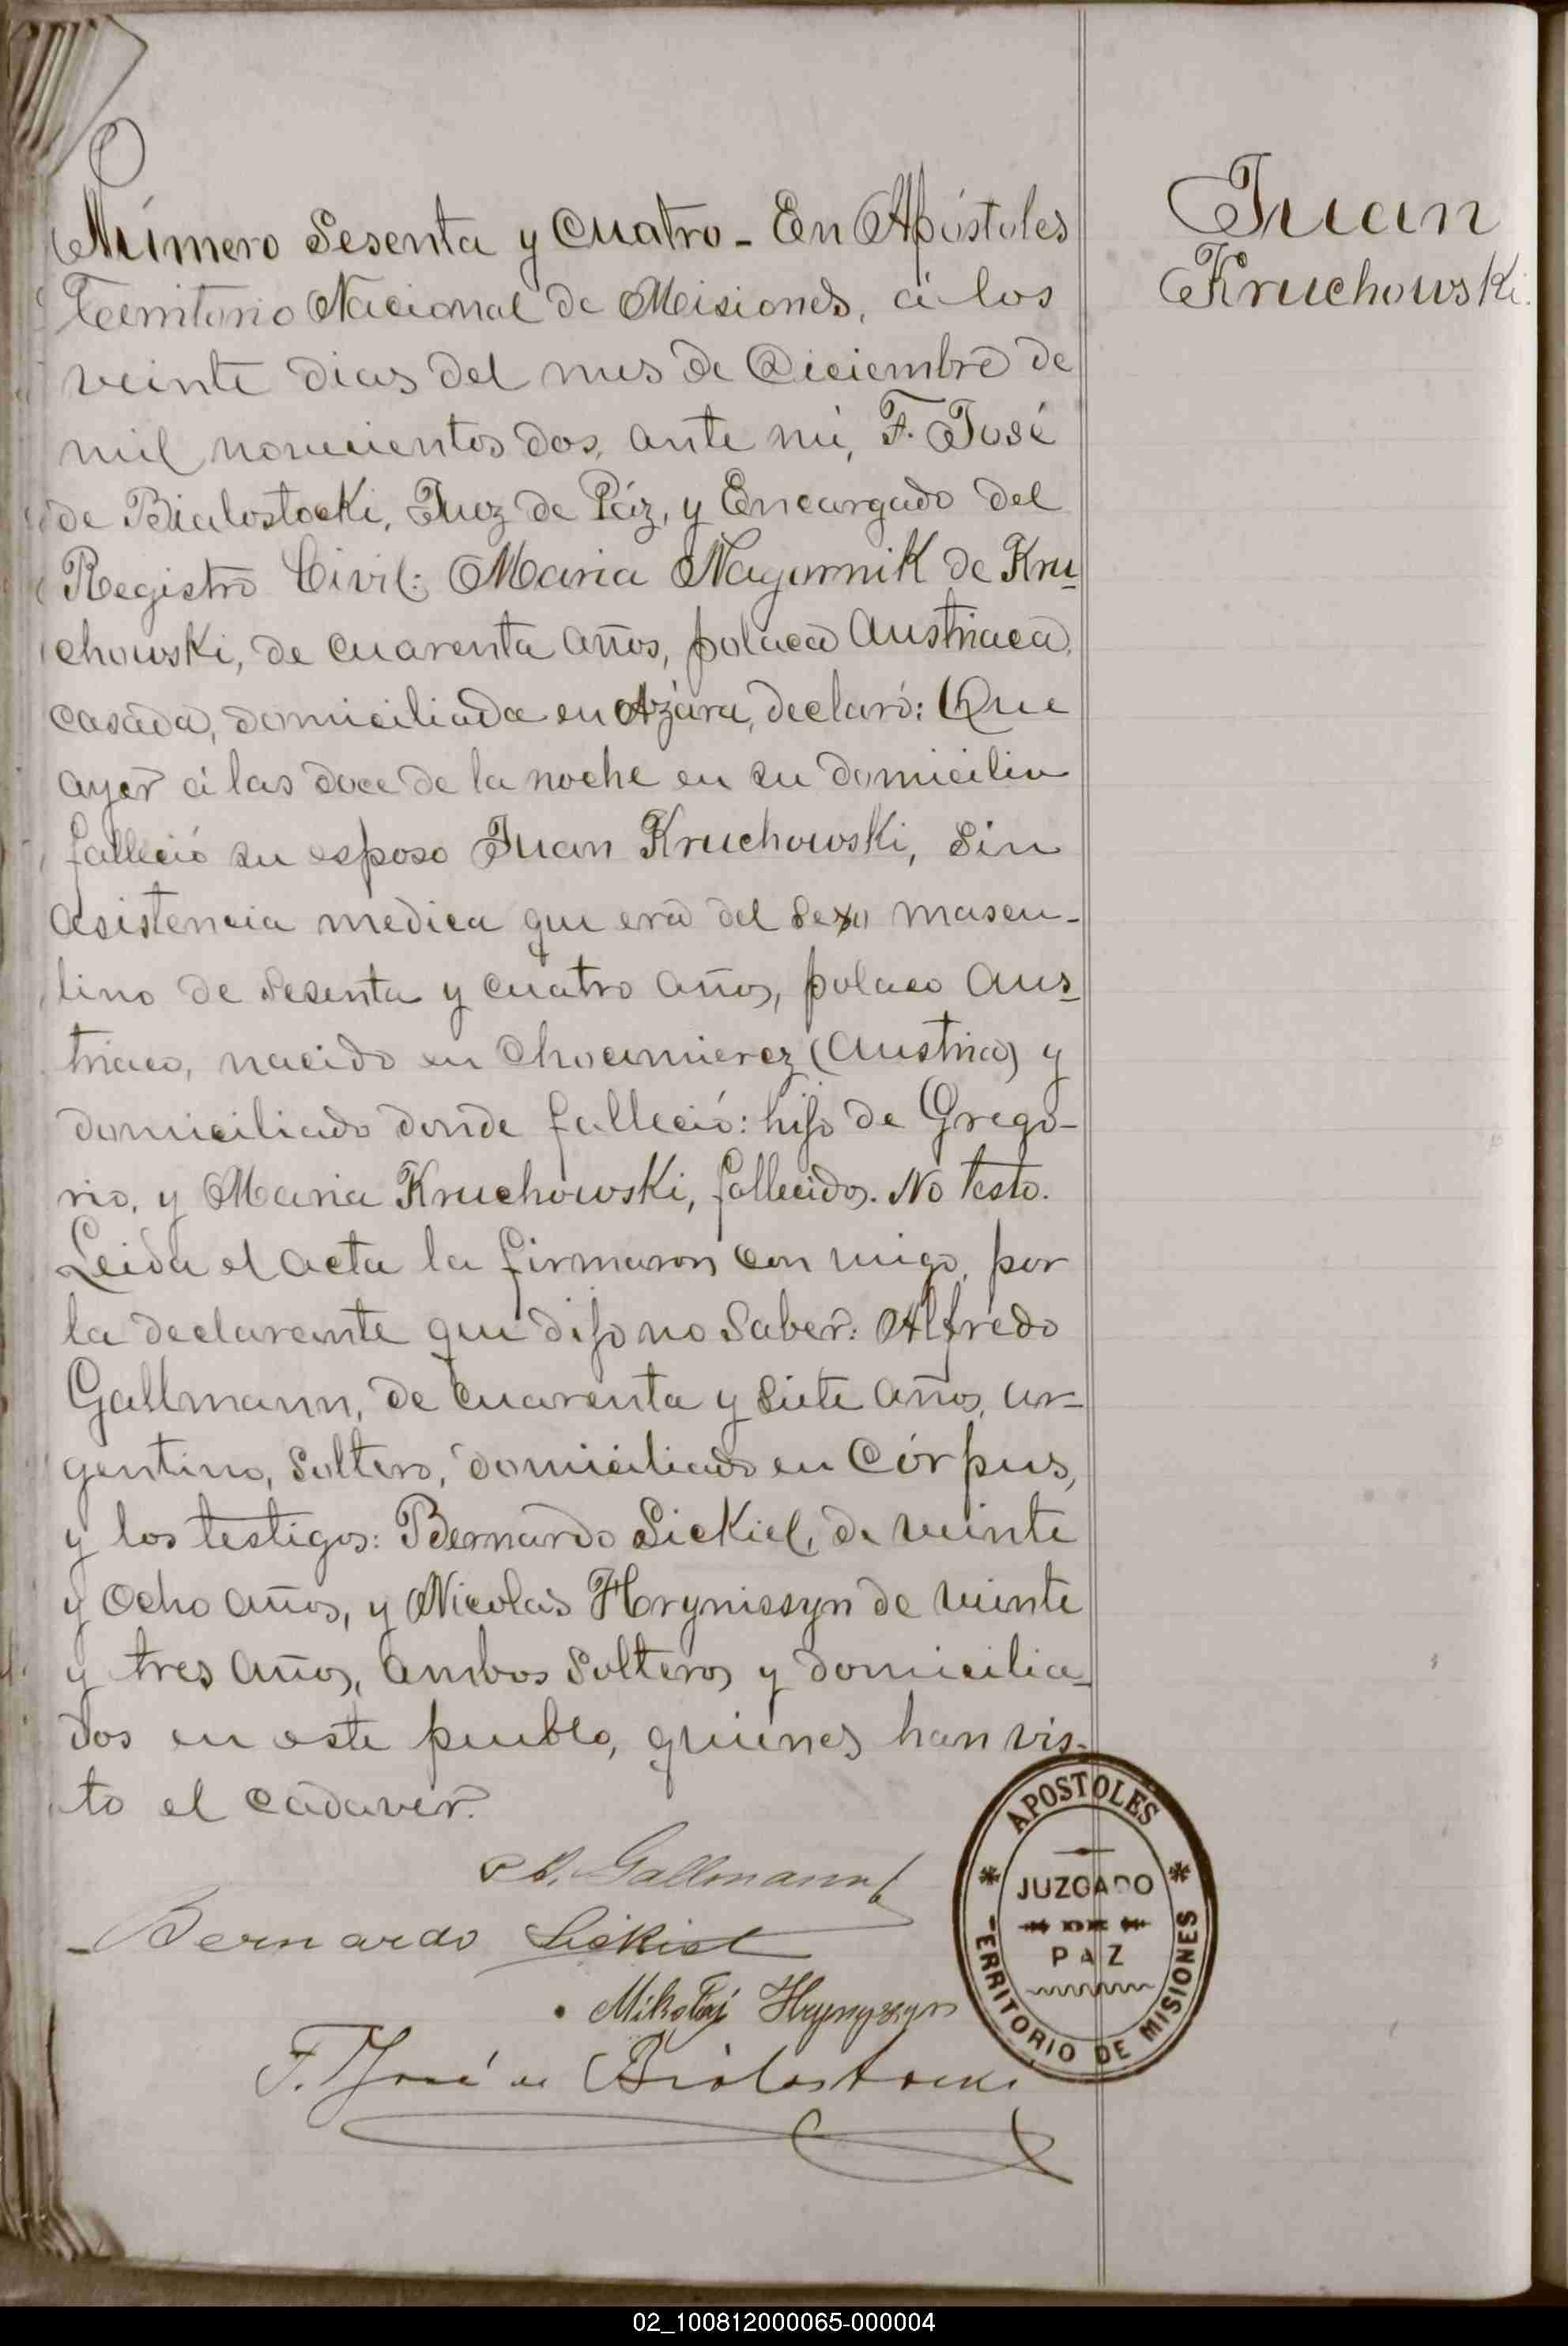 Número Sesenta y Cuatro - En Apóstoles
Territorio Nacional de Misiones, á los
veinte dias del mes de Diciembre de
mil novecientos dos, ante mi, F. José
de Bialostocki, Juez de Páz, y Encargado del
Registro Civil: Maria Nagornik de Kru-
chowski, de cuarenta años, polaca Austriaca,
casada, domiciliada en Azára, declaró: Que
ayer á las doce de la noche en su domicilio
falleció su esposo Juan Kruchowski, sin
asistencia medica que era del sexo mascu-
lino de sesenta y cuatro años, polaco Aus-
triaco, nacido en Chocimierez (Austria) y
domiciliado donde falleció: hijo de Grego-
rio, y Maria Kruchowski, fallecidos. No testo.
Leida el acta la firmaron con migo, por
la declarante que dijo no saber: Alfredo
Gallmann, de cuarenta y siete años, ar-
gentino, soltero, domiciliado en Córpus,
y los testigos: Bernardo Sickiel, de veinte
y ocho años, y Nicolas Hrynissyn de veinte
y tres años, ambos solteros y domicilia-
dos en este pueblo, quiénes han vis-
to el cadaver.
A. Gallmann
Bernardo
Mikołaj Hrynyszyn
F. José de Bialostocki
Juan
Kruchowski.
APOSTOLES
JUZGADO
DE
PAZ
TERRITORIO DE MISIONES
02_100812000065-000004